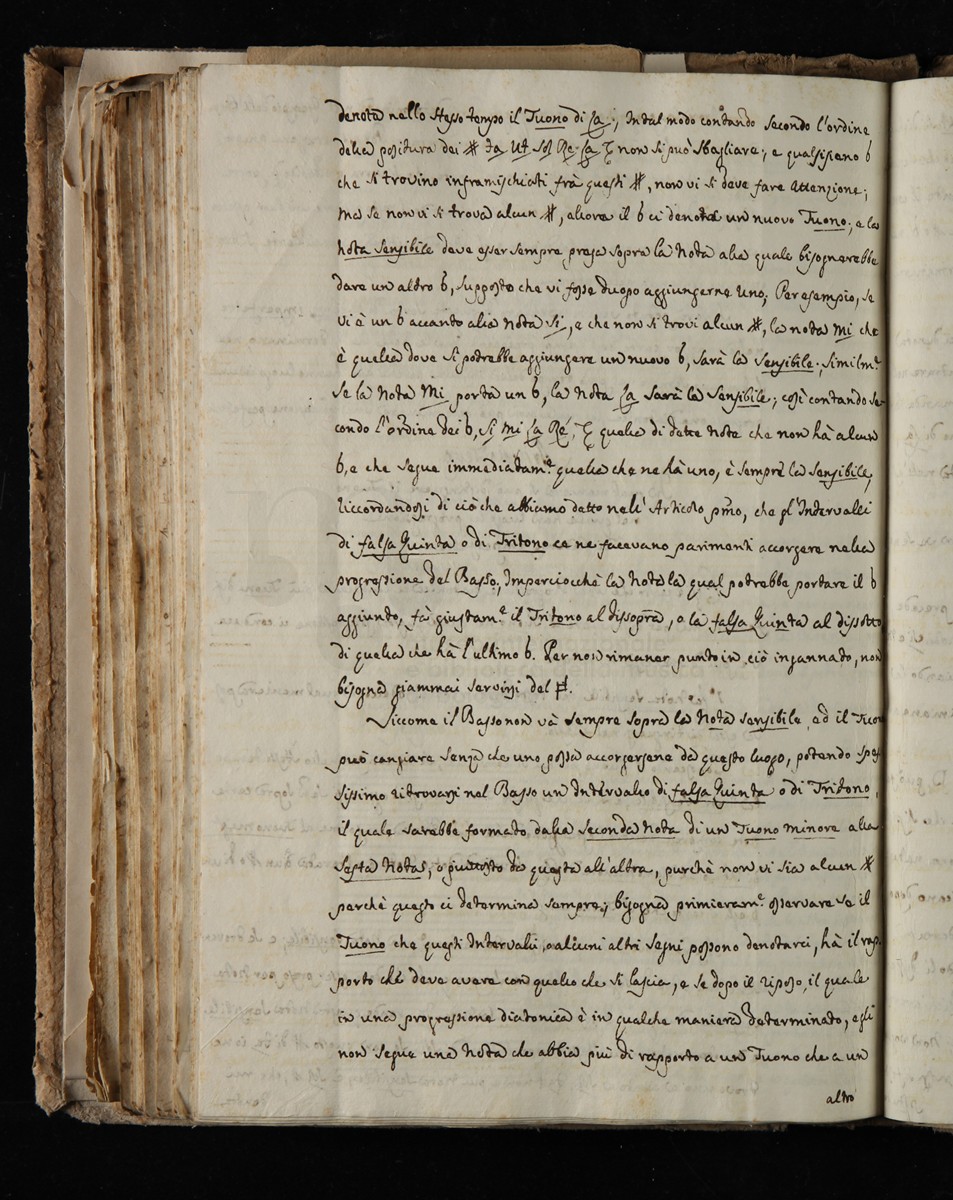 denota nello stesso tempo il Tuono di La; In tal modo contando secondo l'ordine
della positura dei # Fa Ut Sol Re La & non si può sbagliare; e qualsisiano b
che si trovino inframischiati frà questi #, non vi si deve fare attenzione;
ma se non vi si trova alcun #, allora il b ci denota un nuovo Tuono; e la
nota sensibile deve esser sempre presa sopra la nota alla quale bisognerebbe
dare un altro b, supposto che vi fosse duopo aggiungerne uno; Per esempio, se
vi è un b accanto alla nota Si, e che non si trovi alcun #, la nota Mi che
è quella dove si potrebbe aggiungere un nuovo b, sarà la sensibile; similm.e
se la nota Mi porta un b, la nota La sarà la sensibile; così contando se-
condo l'ordine dei b, Si Mi La Ré, & quella di dette note che non hà alcun
b, e che segue immediatam.e quella che ne hà uno, è sempre la sensibile,
riccordandosi di ciò che abbiamo detto nell' Articolo pmo, che gl'Intervalli
di falsa Quinta o di Tritono ce ne facevano parimenti accorgere nella
progressione del Basso; Imperciocchè la nota la qual potrebbe portare il b
aggiunto, fà giustam.e il Tritono al dissopra, o la falsa Quinta al dissotto
di quella che hà l'ultimo b. Per non rimaner punto in ciò ingannato, non
bisogna giammai servirsi del ♮.
Siccome il Basso non và sempre sopra la nota sensibile ed il Tuon
può cangiare senza che uno possa accorgersene da questo luogo, potendo spes
sissimo ritrovarsi nel Basso un Intervallo di falsa Quinta o di Tritono,
il quale sarebbe formato dalla seconda nota di un Tuono minore alla
sesta nota, o piuttosto da questa all'altra, purchè non vi sia alcun #
perchè questo ci determina sempre; bisogna primieram.e osservare se il
Tuono che questi Intervalli, o alcuni altri segni possono denotarci, hà il rap
porto che deve avere con quello che si lascia, e se dopo il riposo, il quale
in una progressione diatonica è in qualche maniera determinato, egli
non segue una nota che abbia più di rapporto a un Tuono che a un
altro